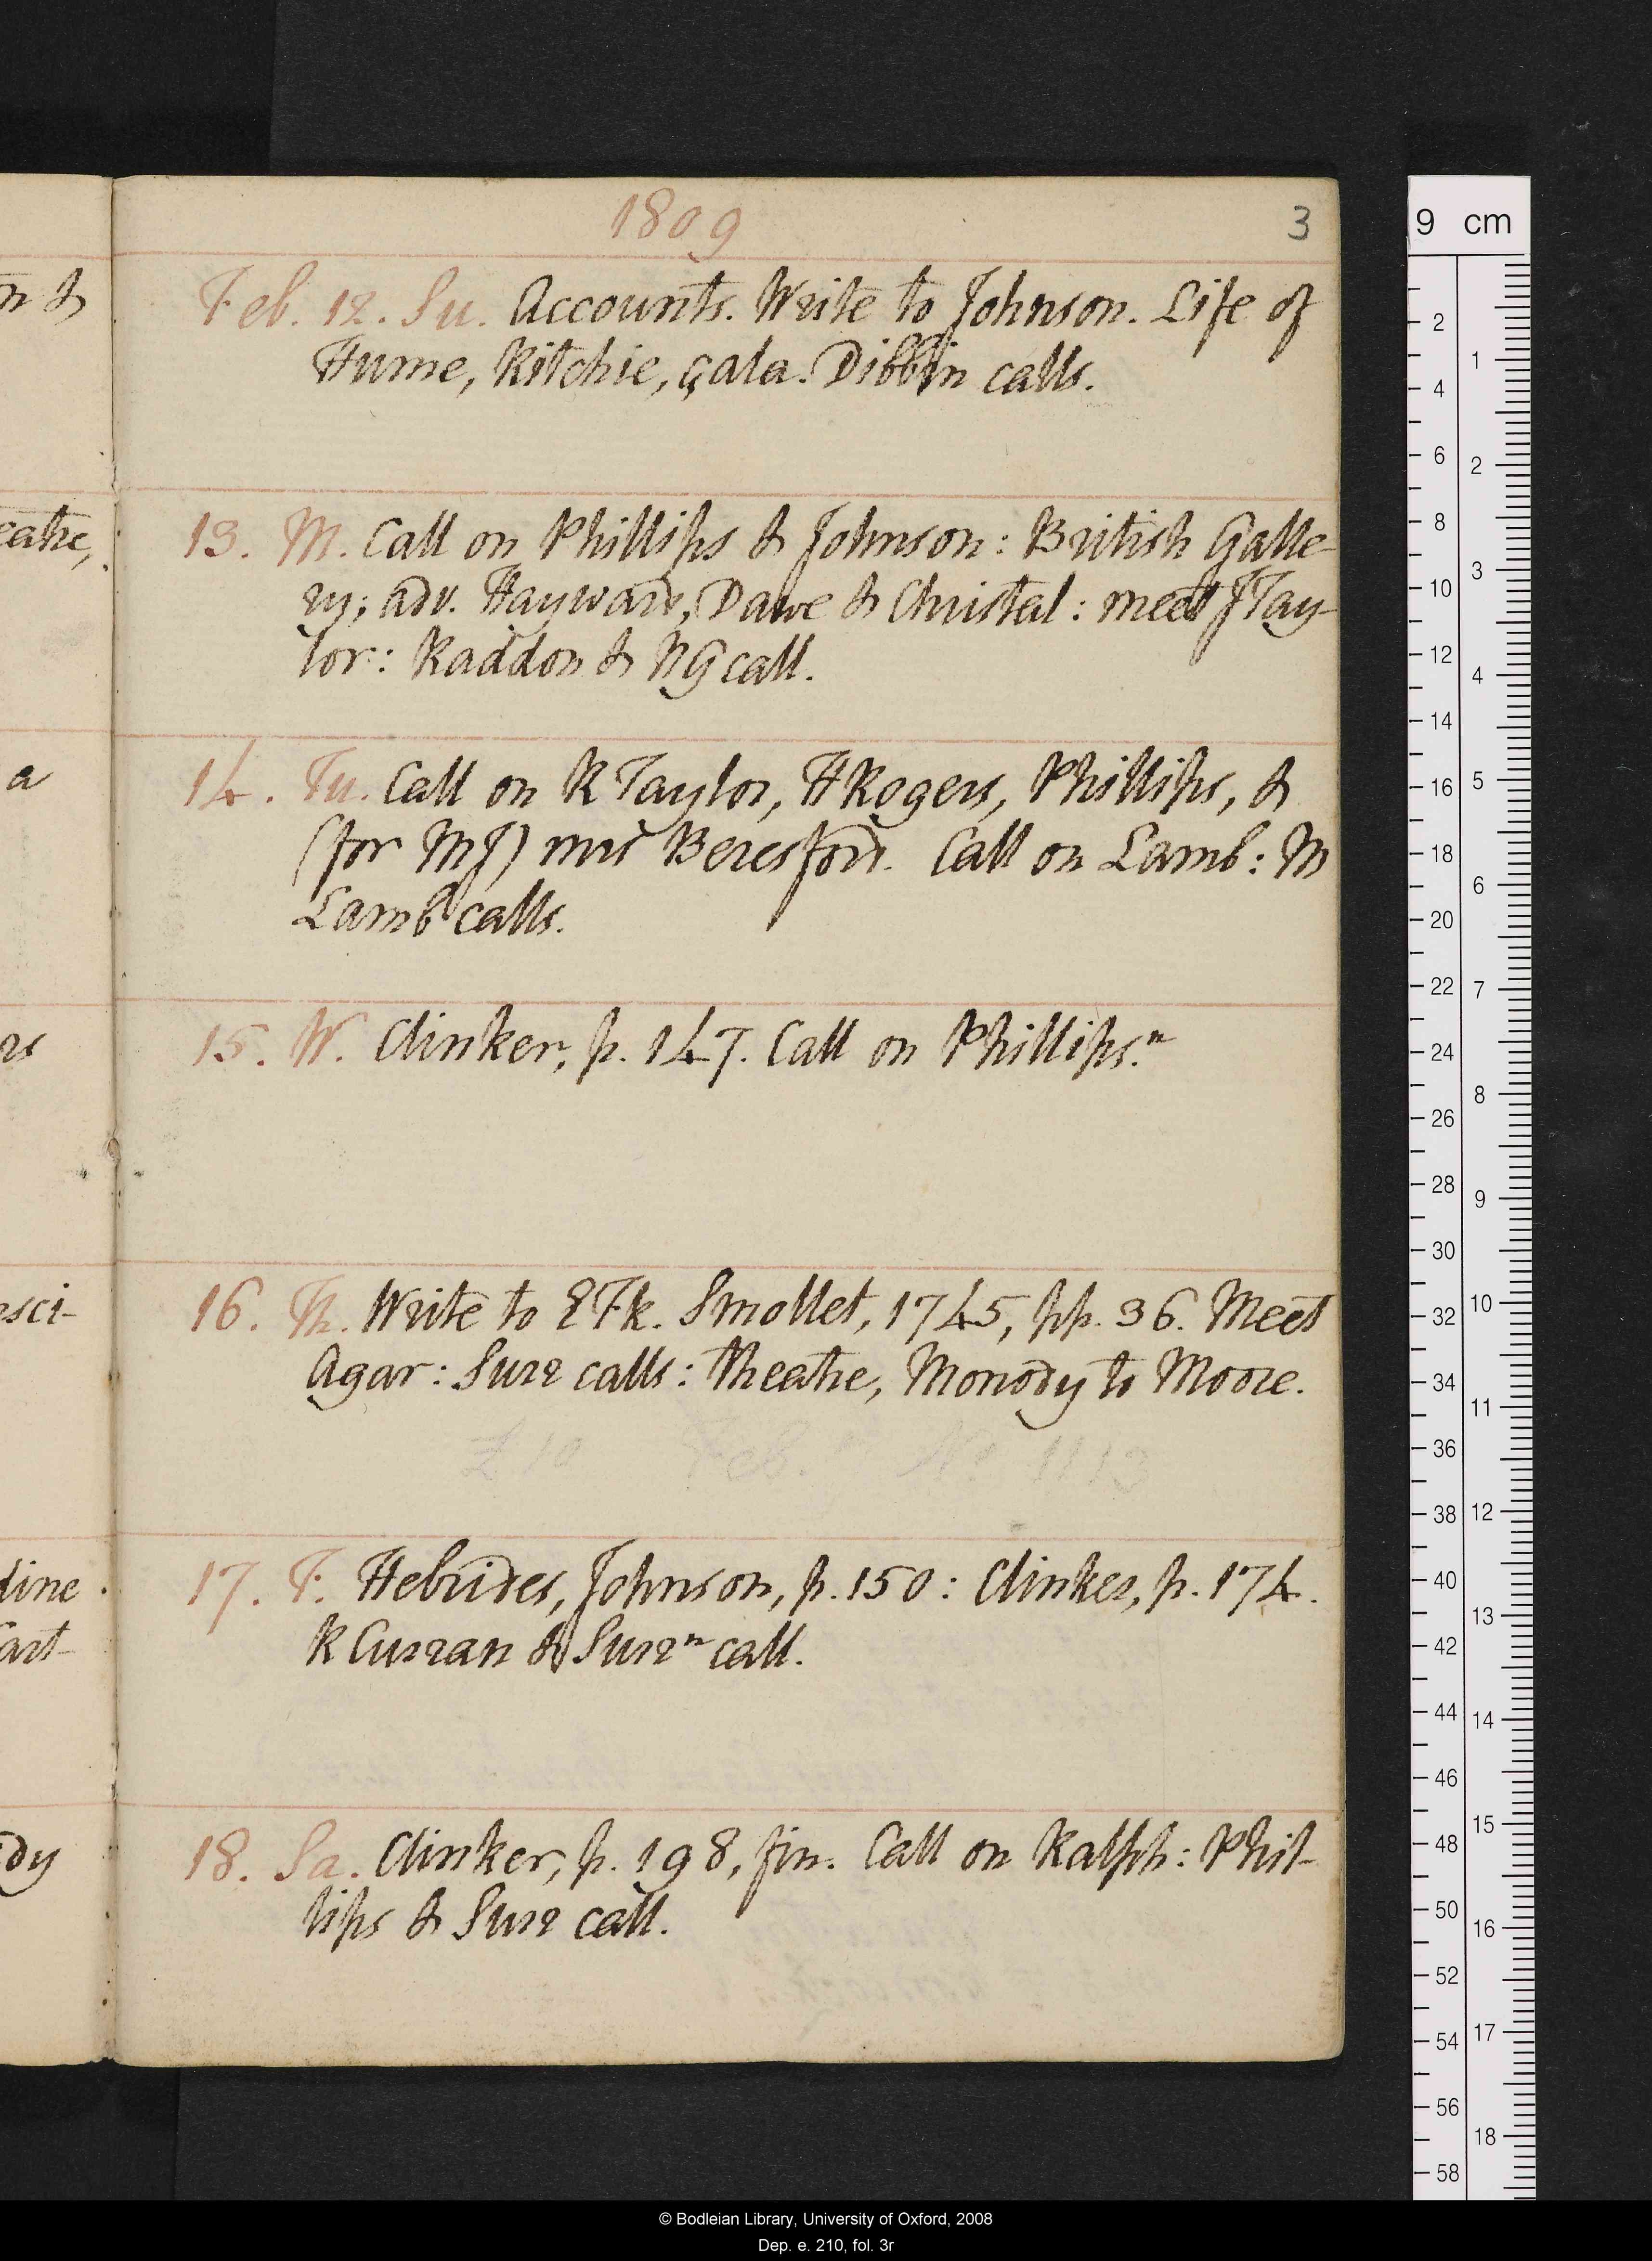 1809
3
Feb. 12. Su. Accounts. Write to Johnson. Life of
Hume, Ritchie, çala. Dibbin calls.
13. M. Call on Phillips & Johnson: British Galle-
ry; adv. Hayward, Dawe & Christal: meet J Tay-
lor: Raddon & N G call.
14. Tu. Call on R Taylor, H Rogers, Phillips, &
(for MJ) mrs Beresford. Call on Lamb: M
Lamb calls.
15. W. Clinker, p. 147. Call on Phillips.n
16. Th. Write to E Fk. Smollet, 1745, pp. 36. Meet
Agar: Surr calls: theatre, Monody to Moore.
£10 Feb. No 1113
17. F. Hebrides, Johnson, p. 150: Clinker, p. 174.
R Curran & Surr n call.
18. Sa. Clinker, p. 198, fin. Call on Ralph: Phil-
lips & Surr call.
n &
eatre,
a
rs
sci-
dine
art-
dy
9 cm
2 4 6 8 10 12 14 16 18 20 22 24 26 28 30 32 34 36 38 40 42 44 46 48 50 52 54 56 58
1 2 3 4 5 6 7 8 9 10 11 12 13 14 15 16 17 18
© Bodleian Library, University of Oxford, 2008
Dep. e. 210, fol. 3r